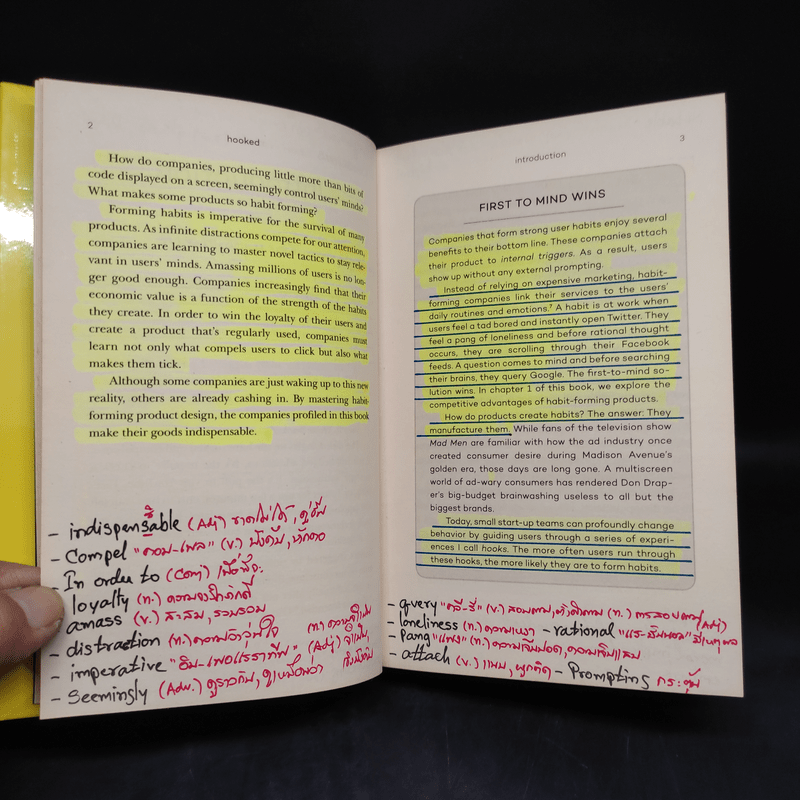 2
hooked
How do companies, producing little more than bits of
code displayed on a screen, seemingly control users' minds?
What makes some products so habit forming?
Forming habits is imperative for the survival of many
products. As infinite distractions compete for our attention,
companies are learning to master novel tactics to stay rele-
vant in users' minds. Amassing millions of users is no lon-
ger good enough. Companies increasingly find that their
economic value is a function of the strength of the habits
they create. In order to win the loyalty of their users and
create a product that's regularly used, companies must
learn not only what compels users to click but also what
makes them tick.
Although some companies are just waking up to this new
reality, others are already cashing in. By mastering habit-
forming product design, the companies profiled in this book
make their goods indispensable.
- indispensable (Adj) ขาดไม่ได้,
- Compel "คอม-เพล" (v.) บังคับ,
- In order to (conj) เพื่อที่จะ
loyalty (n.) ความจงรักภักดี
amass (v.) สะสม, รวบรวม
- distraction (n.)
- imperative (Adj)
- Seemingly (Adv.) ดูราวกับ, ดูเหมือนว่า
3
introduction
FIRST TO MIND WINS
Companies that form strong user habits enjoy several
benefits to their bottom line. These companies attach
their product to internal triggers. As a result, users
show up without any external prompting.
Instead of relying on expensive marketing, habit-
forming companies link their services to the users'
daily routines and emotions.⁷ A habit is at work when
users feel a tad bored and instantly open Twitter. They
feel a pang of loneliness and before rational thought
occurs, they are scrolling through their Facebook
feeds. A question comes to mind and before searching
their brains, they query Google. The first-to-mind so-
lution wins. In chapter 1 of this book, we explore the
competitive advantages of habit-forming products.
How do products create habits? The answer: They
manufacture them. While fans of the television show
Mad Men are familiar with how the ad industry once
created consumer desire during Madison Avenue's
golden era, those days are long gone. A multiscreen
world of ad-wary consumers has rendered Don Drap-
er's big-budget brainwashing useless to all but the
biggest brands.
Today, small start-up teams can profoundly change
behavior by guiding users through a series of experi-
ences I call hooks. The more often users run through
these hooks, the more likely they are to form habits.
- query "ควี-รี่" (v.) สอบถาม, (n.)
- loneliness (n.) ความเหงา - rational มีเหตุผล
- Pang "แพง" (n.) ความเจ็บปวด,
- attach (v.) แนบ, ผูกติด - Prompting กระตุ้น